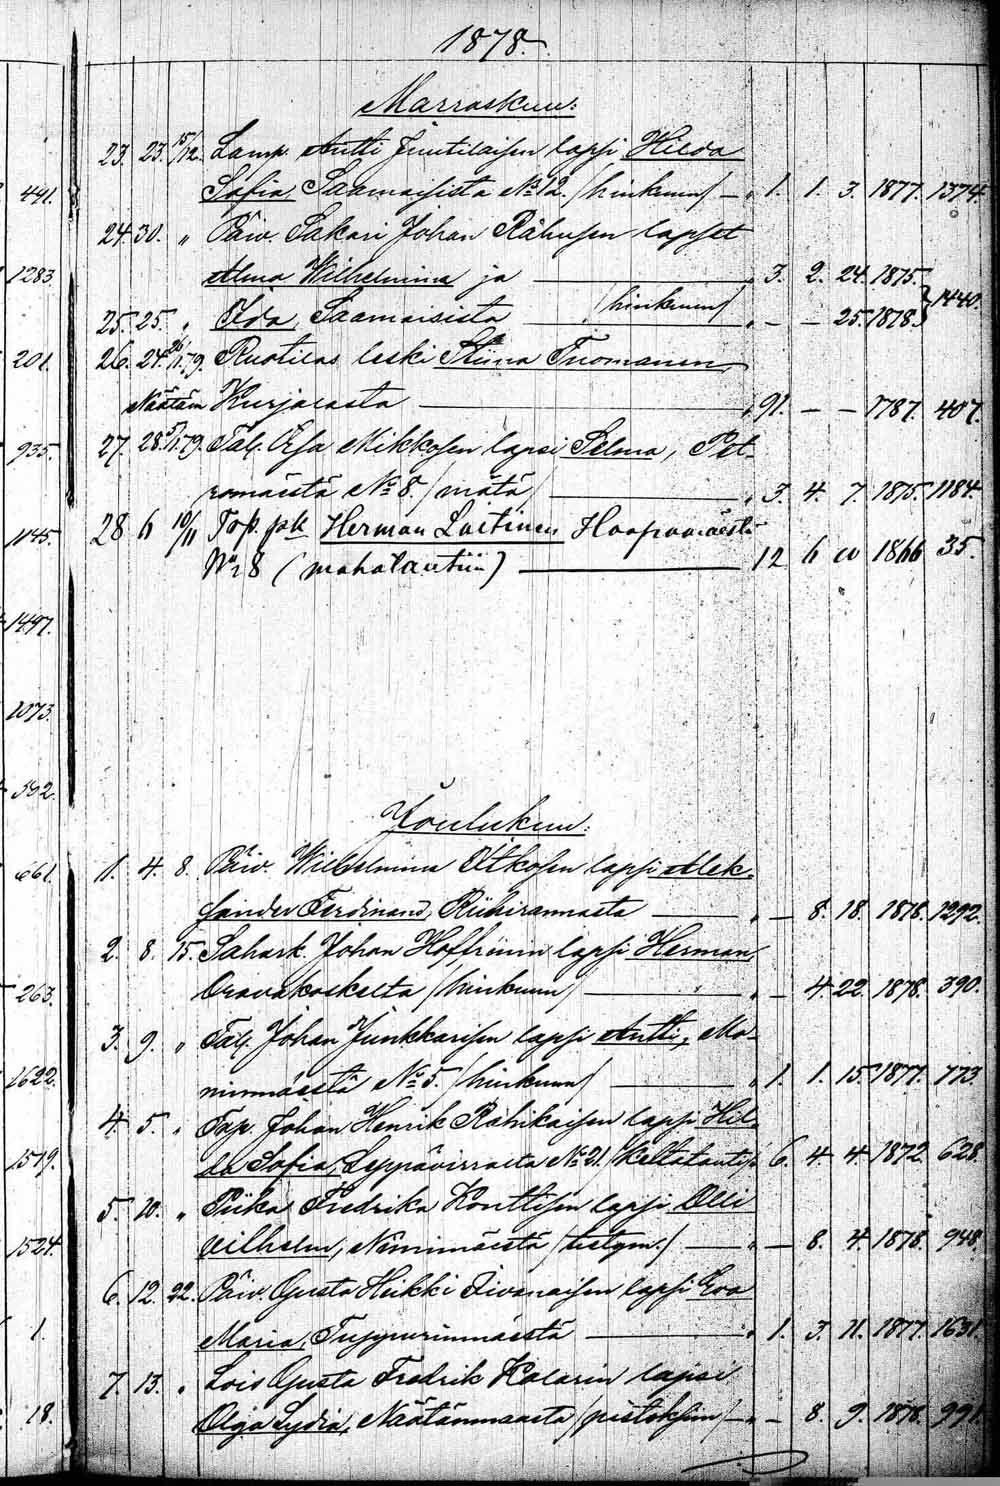 1878.
Marraskuu:
23. 23. 15/12. Lamp. Antti Juutilaisen lapsi Hilda
491. Sofia, Saamaisista No 12. /hinkuun/ — " 1. 1. 3. 1877. 1374.
24. 30. " Päiv. Sakari Johan Rähusen lapset
1283. Alma Wilhelmina ja — " 3. 2. 24. 1875.
25. 25. " Ida, Saamaisista /hinkuun/ " — — 25. 1878. } 1440.
201. 26. 24. 26/1.79. Ruotilas leski Stiina Tuomanen
Näätäm Kurjalasta — " 91. — — 1787. 407.
935. 27. 28. 5/1.79. Tal. Mikkosen lapsi Selma, Pet-
romäestä No 8. /mätä/ — " 3. 4. 7. 1875. 1184.
1145. 28 6 10/11 Top. pk Herman Laitinen Haapamäestä
No 8 (mahatautiin) — 12 6 10 1866 35.
1497.
1073.
592.
Joulukuu:
661. 1. 4. 8. Päiv. Wilhelmina Itkosen lapsi Alek-
sander Ferdinand, Riihirannasta — " — 8. 18. 1878. 1292.
2. 8. 15. Sahark. Johan Hoffrénin lapsi Herman,
263. Oravakoskelta /hinkuun/ — " — 4. 22. 1878. 390.
3. 9. " Tal. Johan Junkkarisen lapsi Antti, Mo-
1622. ninmäestä No 5. /hinkuun/ — " 1. 1. 15. 1877. 773.
4. 5. " Top. Johan Henrik Rahikaisen lapsi Hil-
1519. da Sofia, Leppävirralta No 21. /keltatauti/ " 6. 4. 4. 1872. 628.
5. 10. " Piika Fredrika Konttisen lapsi Olli
1524. Vilhelm, Nikimäestä — " — 8. 4. 1878. 948.
6. 12. 22. Päiv. Gusta Heikki Iivanaisen lapsi Eva
1. Maria, Tuppurinmäestä — " 1. 3. 11. 1877. 1631.
7. 13. " Lois Gusta Fredrik Kolarin lapsi
18. Olga Lydia, Näätänmaasta /pistoksiin/ — " — 8. 9. 1878. 991.